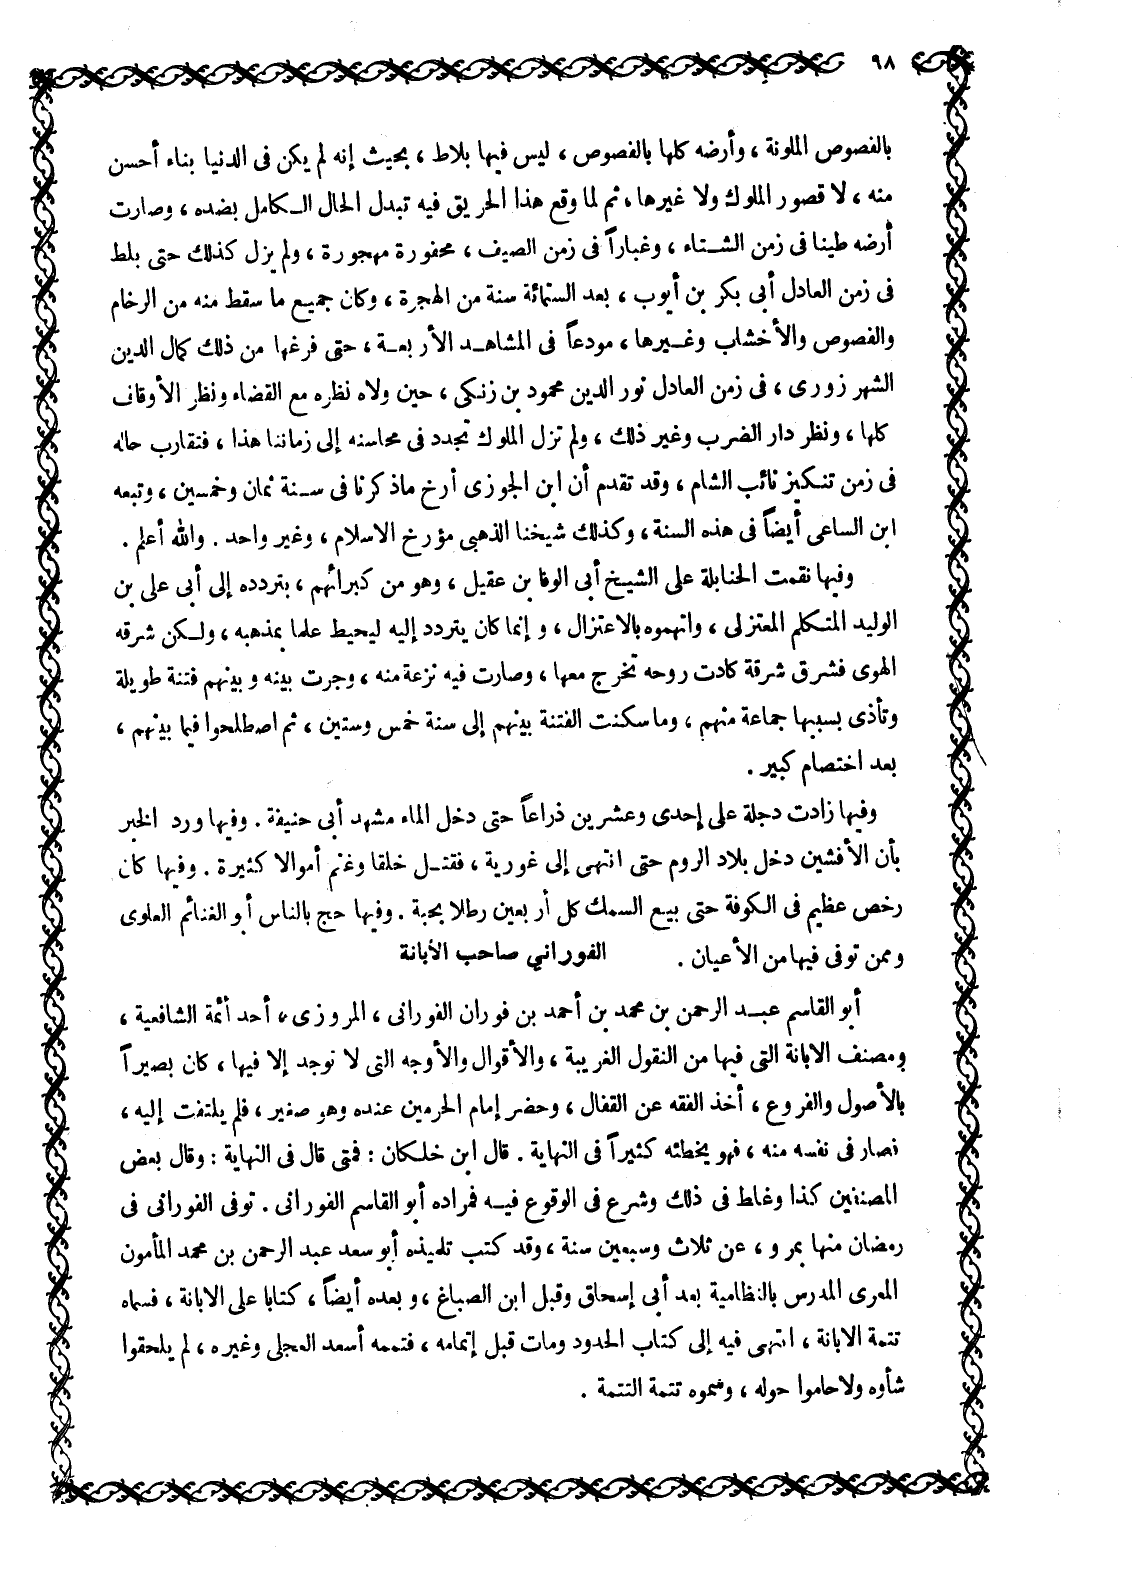 ٩٨
بالفصوص الملونة ، وأرضه كلها بالفصوص ، ليس فيها بلاط ، بحيث إنه لم يكن فى الدنيا بناء أحسن
منه ، لا قصور الملوك ولا غيرها ، ثم لما وقع هذا الحريق فيه تبدل الحال الكامل بضده ، وصارت
أرضه طينا فى زمن الشتاء ، وغباراً فى زمن الصيف ، محفورة مهجورة ، ولم يزل كذلك حتى بلط
فى زمن العادل أبى بكر بن أيوب ، بعد الستمائة سنة من الهجرة ، وكان جميع ما سقط منه من الرخام
والفصوص والأخشاب وغيرها ، مودعاً فى المشاهد الأربعة ، حتى فرغها من ذلك كمال الدين
الشهر زورى ، فى زمن العادل نور الدين محمود بن زنكى ، حين ولاه نظره مع القضاء ونظر الأوقاف
كلها ، ونظر دار الضرب وغير ذلك ، ولم تزل الملوك تجدد فى محاسنه إلى زماننا هذا ، فتقارب حاله
فى زمن تنكيز نائب الشام ، وقد تقدم أن ابن الجوزى أرخ ماذكرنا فى سنة ثمان وخمسين ، وتبعه
ابن الساعى أيضاً فى هذه السنة ، وكذلك شيخنا الذهبى مؤرخ الاسلام ، وغير واحد . والله أعلم .
وفيها نقمت الحنابلة على الشيخ أبى الوفا بن عقيل ، وهو من كبرائهم ، بتردده إلى أبى على بن
الوليد المتكلم المعتزلى ، واتهموه بالاعتزال ، و إنما كان يتردد إليه ليحيط علما بمذهبه ، ولكن شرقه
الهوى فشرق شرقة كادت روحه تخرج معها ، وصارت فيه نزعة منه ، وجرت بينه و بينهم فتنة طويلة
وتأذى بسببها جماعة منهم ، وما سكنت الفتنة بينهم إلى سنة خمس وستين ، ثم اصطلحوا فيما بينهم ،
بعد اختصام كبير .
وفيها زادت دجلة على إحدى وعشرين ذراعاً حتى دخل الماء مشهد أبى حنيفة . وفيها ورد الخبر
بأن الأفشين دخل بلاد الروم حتى انتهى إلى غورية ، فقتل خلقا وغنم أموالا كثيرة . وفيها كان
رخص عظيم فى الكوفة حتى بيع السمك كل أربعين رطلا بحبة . وفيها حج بالناس أبو الغنائم العلوى
وممن توفى فيها من الأعيان . الفوراني صاحب الأبانة
أبو القاسم عبد الرحمن بن محمد بن أحمد بن فوران الفورانى ، المروزى ، أحد أئمة الشافعية ،
ومصنف الابانة التى فيها من النقول الغريبة ، والأقوال والأوجه التى لا توجد إلا فيها ، كان بصيراً
بالأصول والفروع ، أخذ الفقه عن القفال ، وحضر إمام الحرمين عنده وهو صغير ، فلم يلتفت إليه ،
فصار فى نفسه منه ، فهو يخطئه كثيراً فى النهاية . قال ابن خلكان : فمتى قال فى النهاية : وقال بعض
المصنفين كذا وغلط فى ذلك وشرع فى الوقوع فيه فمراده أبو القاسم الفورانى . توفى الفورانى فى
رمضان منها بمرو ، عن ثلاث وسبعين سنة ، وقد كتب تلميذه أبو سعد عبد الرحمن بن محمد المأمون
المعرى المدرس بالنظامية بعد أبى إسحاق وقبل ابن الصباغ ، و بعده أيضاً ، كتابا على الابانة ، فسماه
تتمة الابانة ، انتهى فيه إلى كتاب الحدود ومات قبل إتمامه ، فتممه أسعد العجلى وغيره ، لم يلحقوا
شأوه ولا حاموا حوله ، وسموه تتمة التتمة .